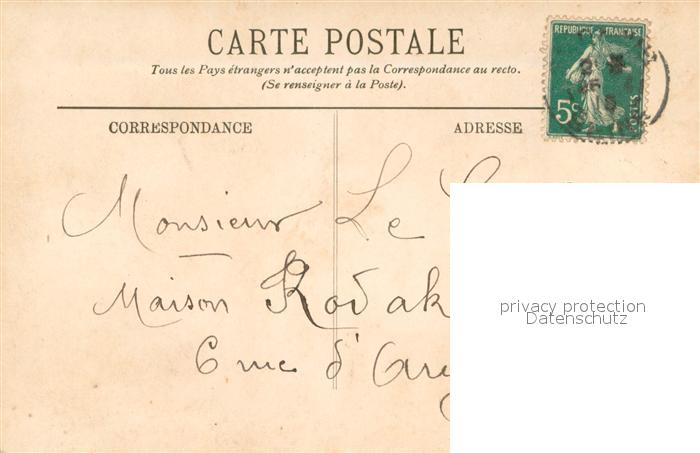 CARTE POSTALE
Tous les Pays étrangers n'acceptent pas la Correspondance au recto.
(Se renseigner à la Poste).
REPUBLIQUE FRANÇAISE
5c POSTES
CORRESPONDANCE ADRESSE
Monsieur Le
Maison Kodak
6 rue d'
privacy protection
Datenschutz